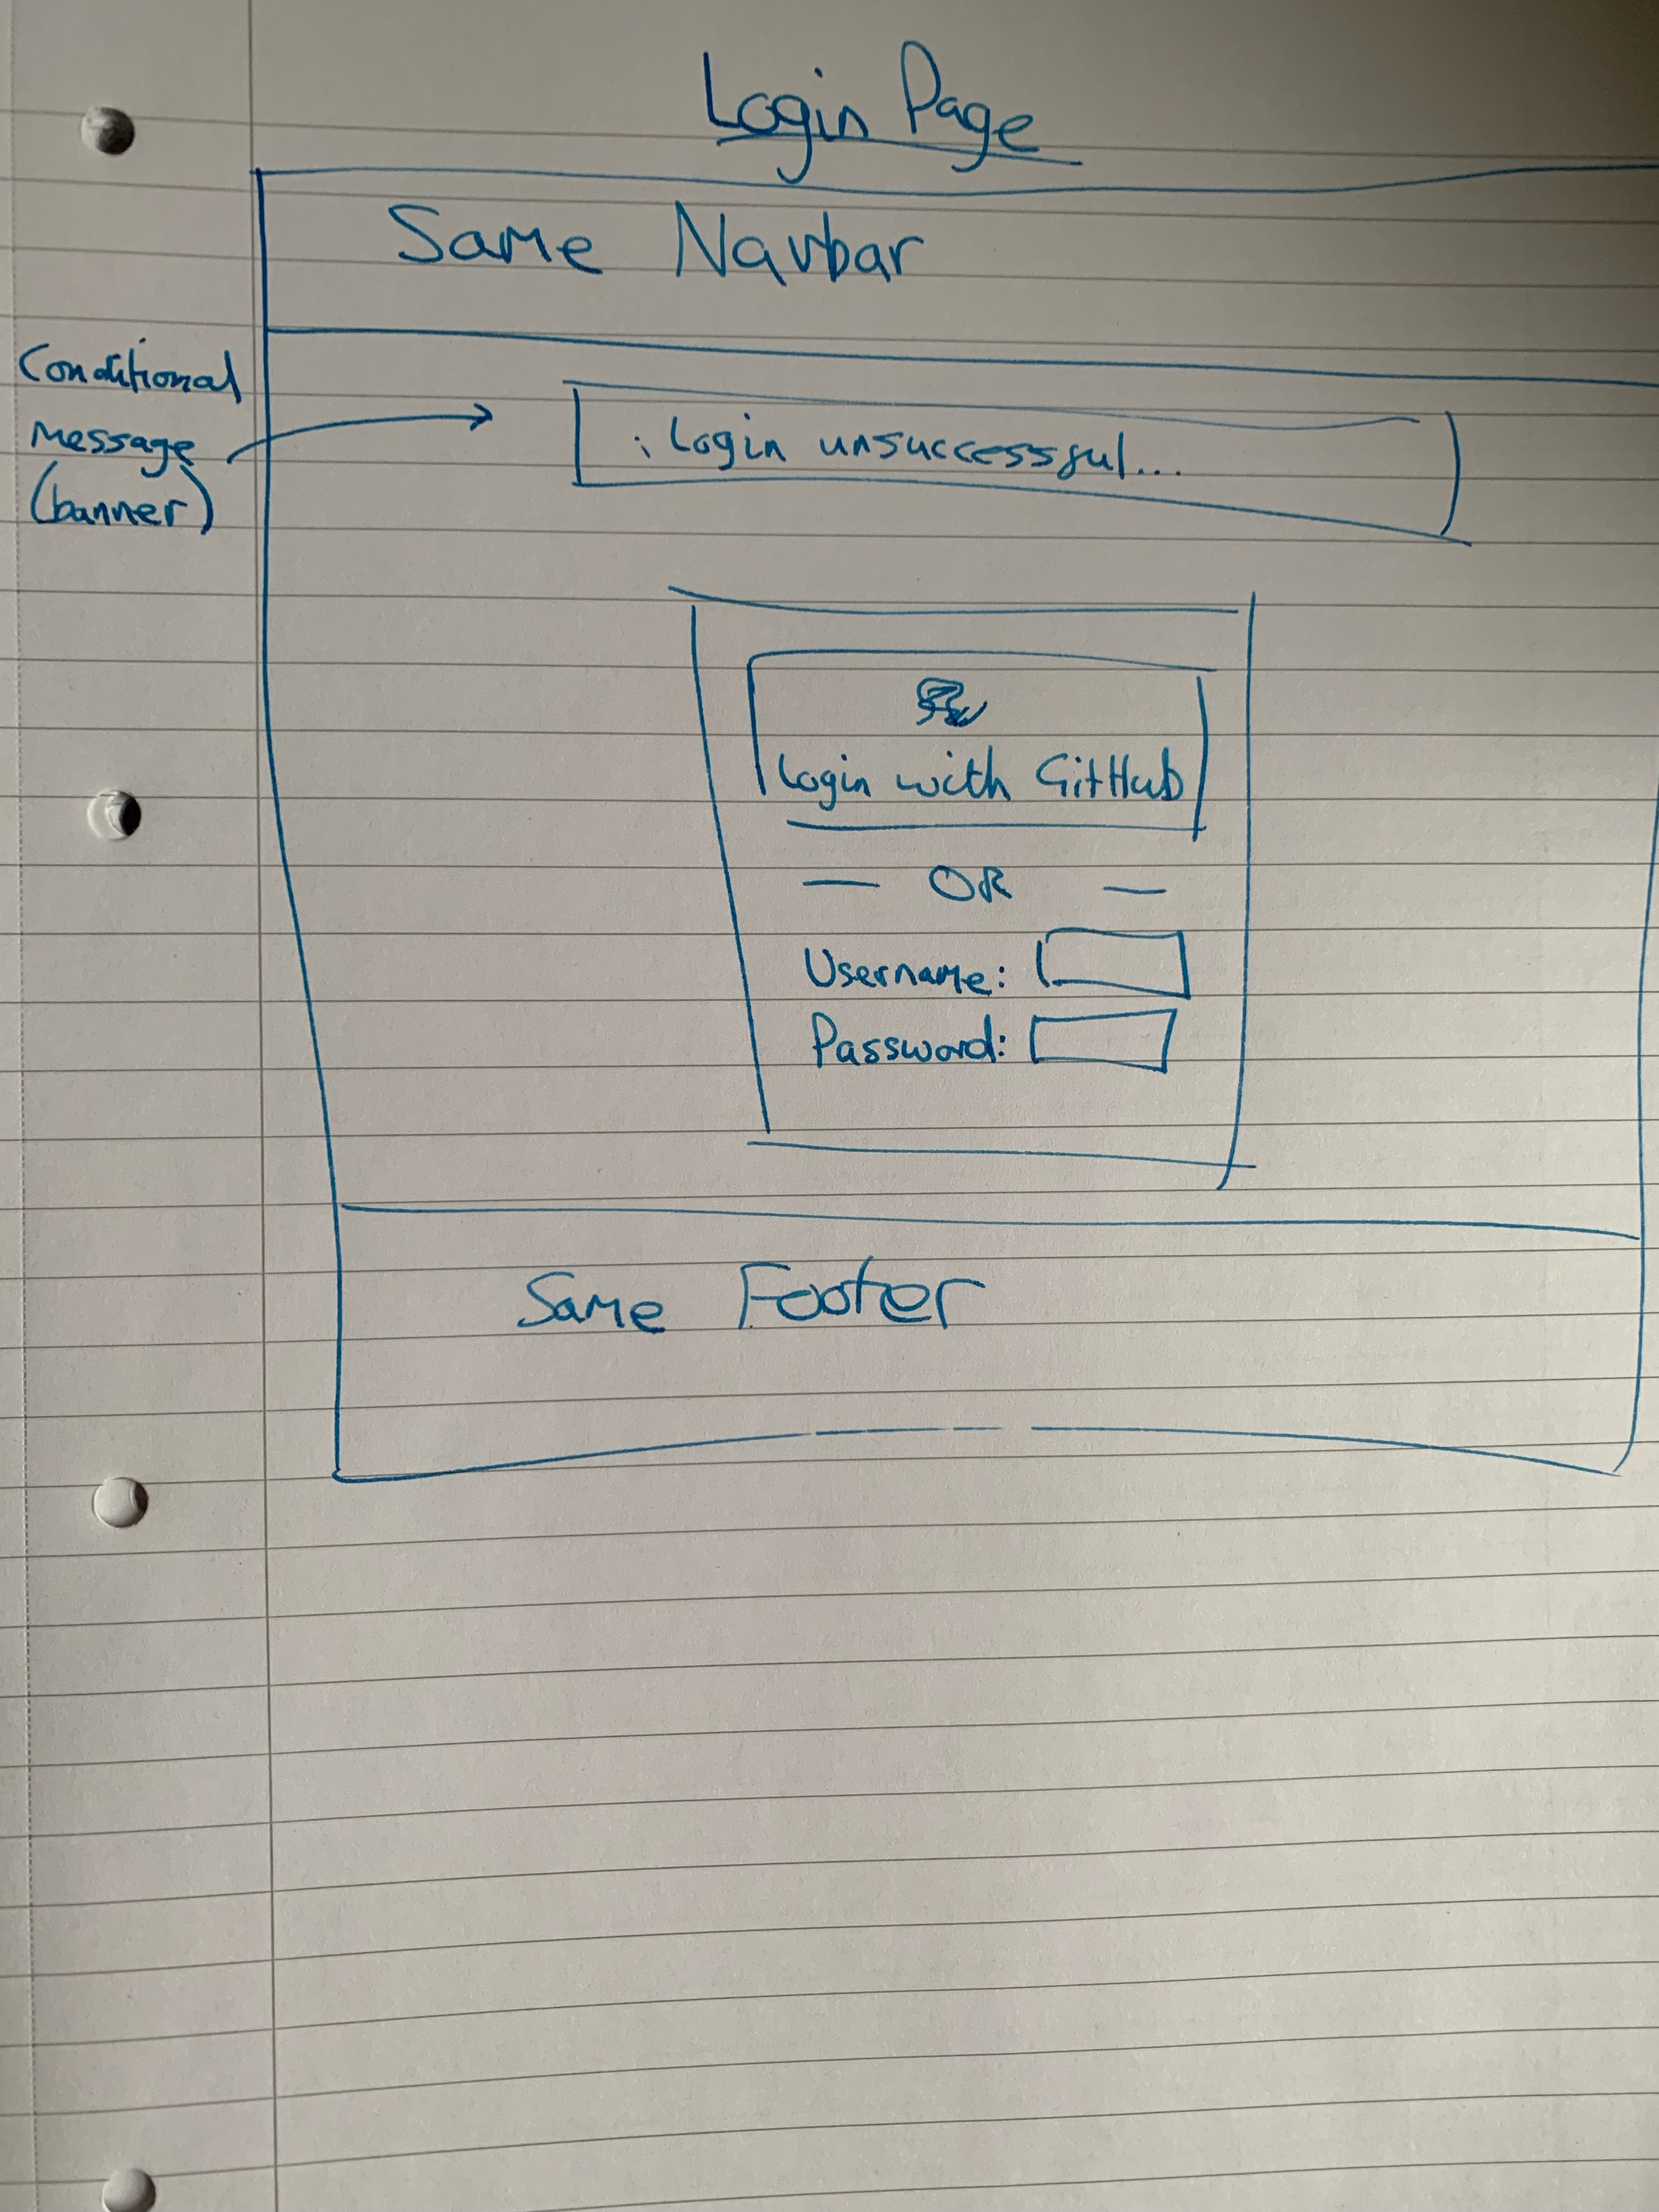 Login Page
Same Navbar
Conditional
Message
(banner)
Login unsuccessful...
Login with GitHub
— OR —
Username:
Password:
Same Footer